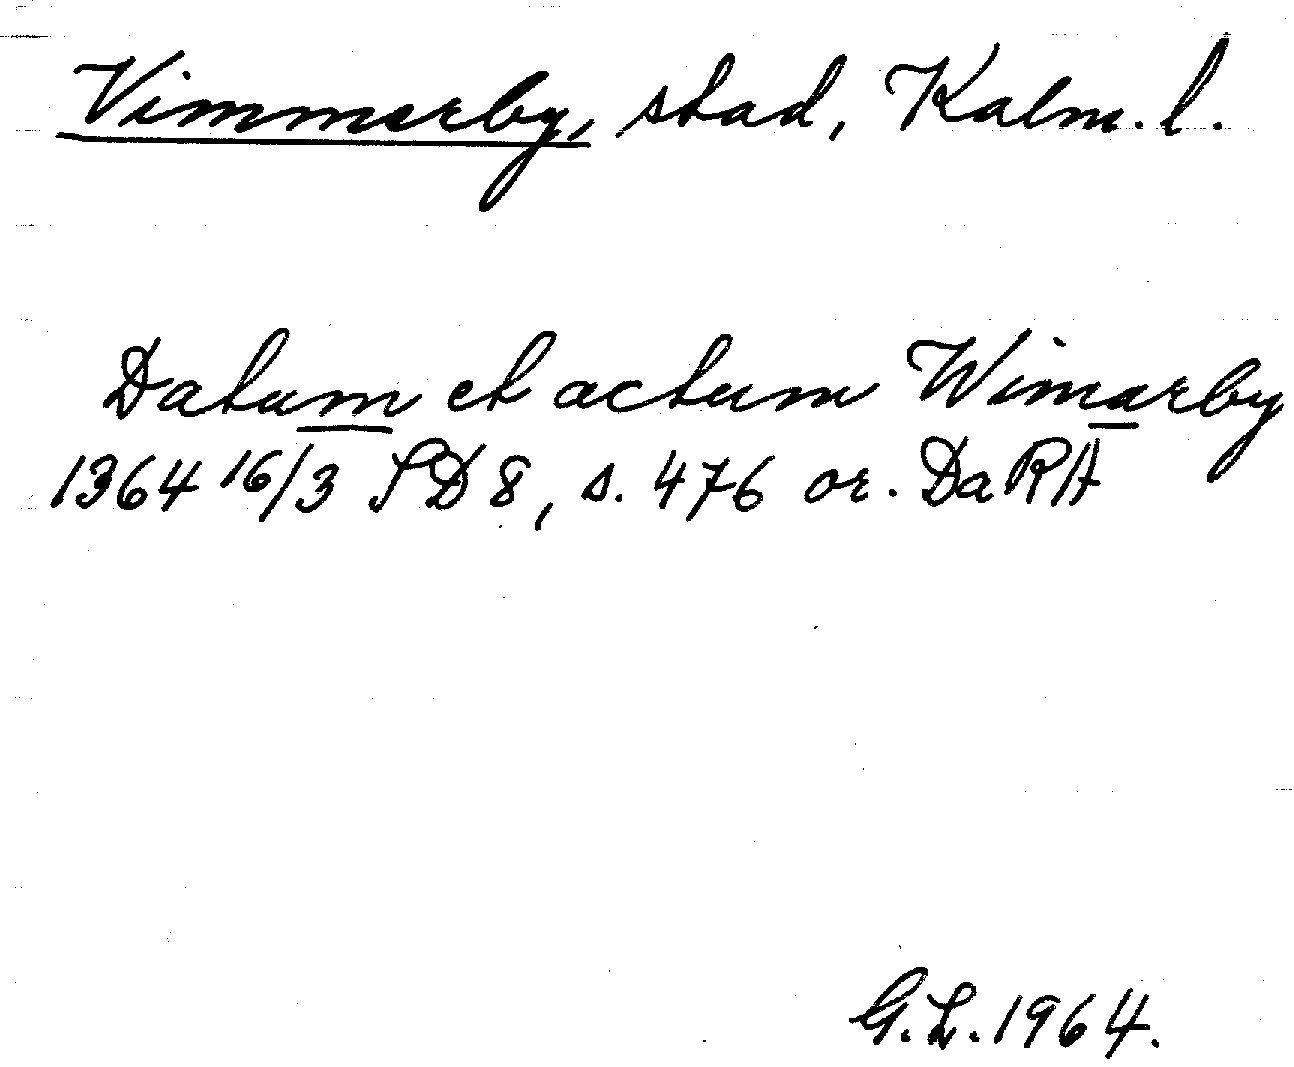 Vimmerby, stad, Kalm. l.
Datum et actum Wimarby
1364 16/3 SD 8, s. 476 or. DaRA
G.L. 1964.